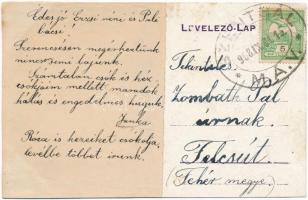 Édes jó Erzsi néni és Pali
bácsi!
Szerencsésen megérkeztünk
nincs semmi bajunk.
Számtalan csók és kéz-
csókjaim mellett maradok
hálás és engedelmes húguk
Janka
Róza is kezeiket csókolja,
levélbe többet írunk.
LEVELEZŐ-LAP
M.A.
Tekintetes
Zombath Pál
úrnak.
Felcsút.
(Fehér megye.)